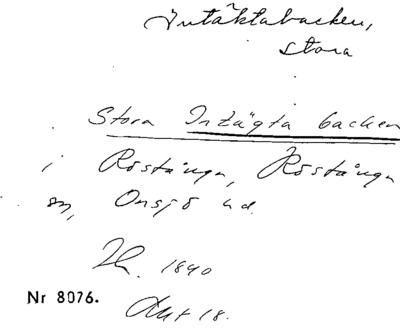 Intäktabacken,
stora
Stora Intägta backen
i Röstånga, Röstånga
sn, Onsjö hd.
1840
Nr 8076.
Akt 18.